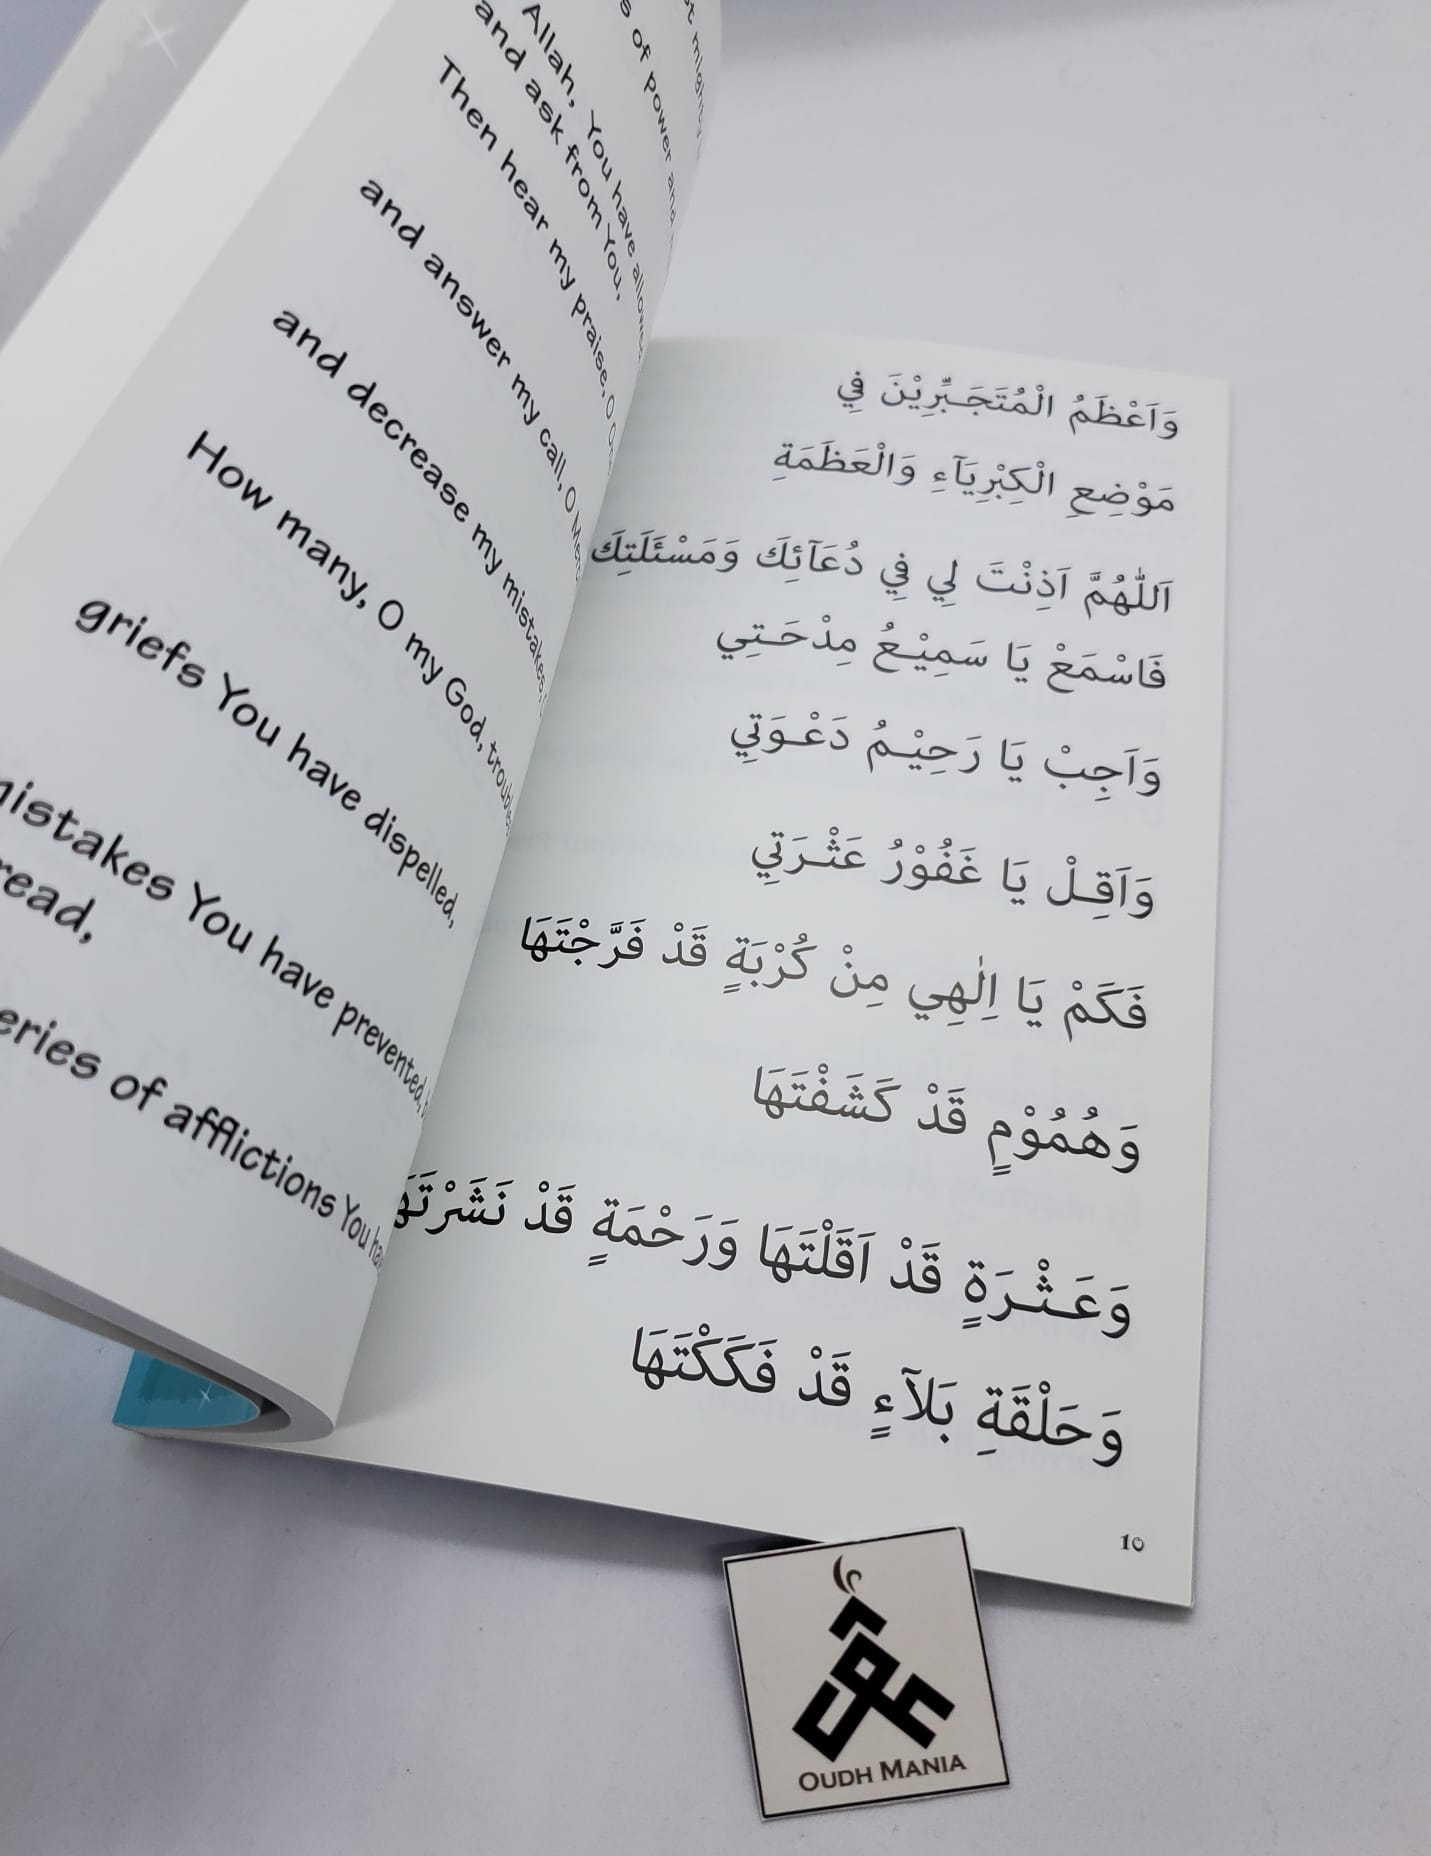 st mighty
s of power and
Allah, You have allowed
and ask from You,
Then hear my praise, O
and answer my call, O
and decrease my mistakes,
How many, O my God,
griefs You have dispelled,
You have prevented,
read,
of afflictions You
وَاَعْظَمُ الْمُتَجَبِّرِيْنَ فِي
مَوْضِعِ الْكِبْرِيَآءِ وَالْعَظَمَةِ
اَللّٰهُمَّ اَذِنْتَ لِي فِي دُعَآئِكَ وَمَسْئَلَتِكَ
فَاسْمَعْ يَا سَمِيْعُ مِدْحَتِي
وَاَجِبْ يَا رَحِيْمُ دَعْوَتِي
وَاَقِلْ يَا غَفُوْرُ عَثْرَتِي
فَكَمْ يَا اِلٰهِي مِنْ كُرْبَةٍ قَدْ فَرَّجْتَهَا
وَهُمُوْمٍ قَدْ كَشَفْتَهَا
وَعَثْرَةٍ قَدْ اَقَلْتَهَا وَرَحْمَةٍ قَدْ نَشَرْتَهَا
وَحَلْقَةِ بَلَآءٍ قَدْ فَكَكْتَهَا
10
OUDH MANIA